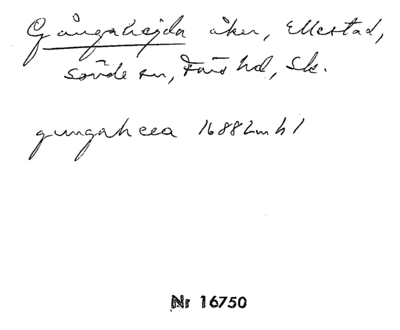 Gångahejda åker, Ellestad,
Sövde sn, Färs hd, Sk.
gungaheea 1688 Lmh1
Nr 16750